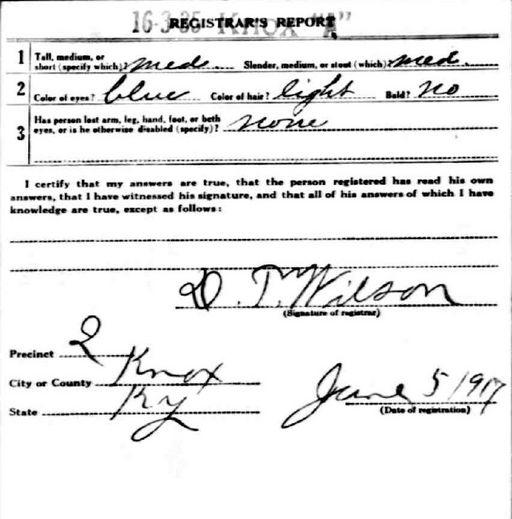 16-3-35 KNOX "A"
REGISTRAR'S REPORT
1 Tall, medium, or short (specify which)? med. Slender, medium, or stout (which)? med.
2 Color of eyes? blue Color of hair? light Bald? no
3 Has person lost arm, leg, hand, foot, or both eyes, or is he otherwise disabled (specify)? none
I certify that my answers are true, that the person registered has read his own
answers, that I have witnessed his signature, and that all of his answers of which I have
knowledge are true, except as follows:
D. T. Wilson
(Signature of registrar)
Precinct 2
City or County Knox
State Ky
June 5 1917
(Date of registration)